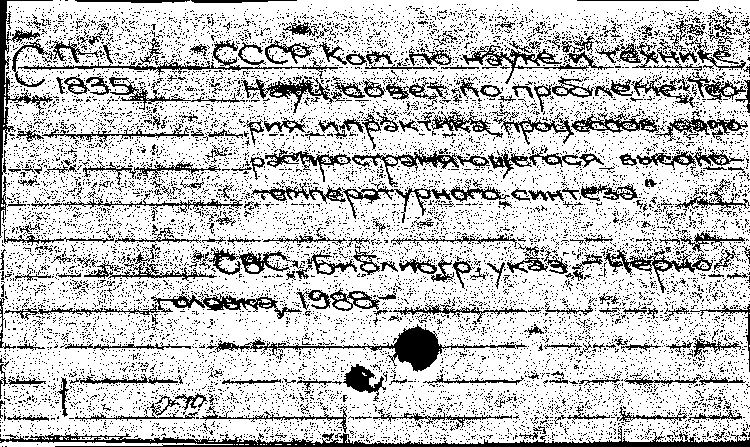 С П-1 СССР. Ком. по науке и технике.
1835 Науч. совет по проблеме "Тео-
рия и практика процессов само-
распространяющегося высоко-
температурного синтеза"
СВС. Библиогр. указ. - Черно-
головка, 1988-